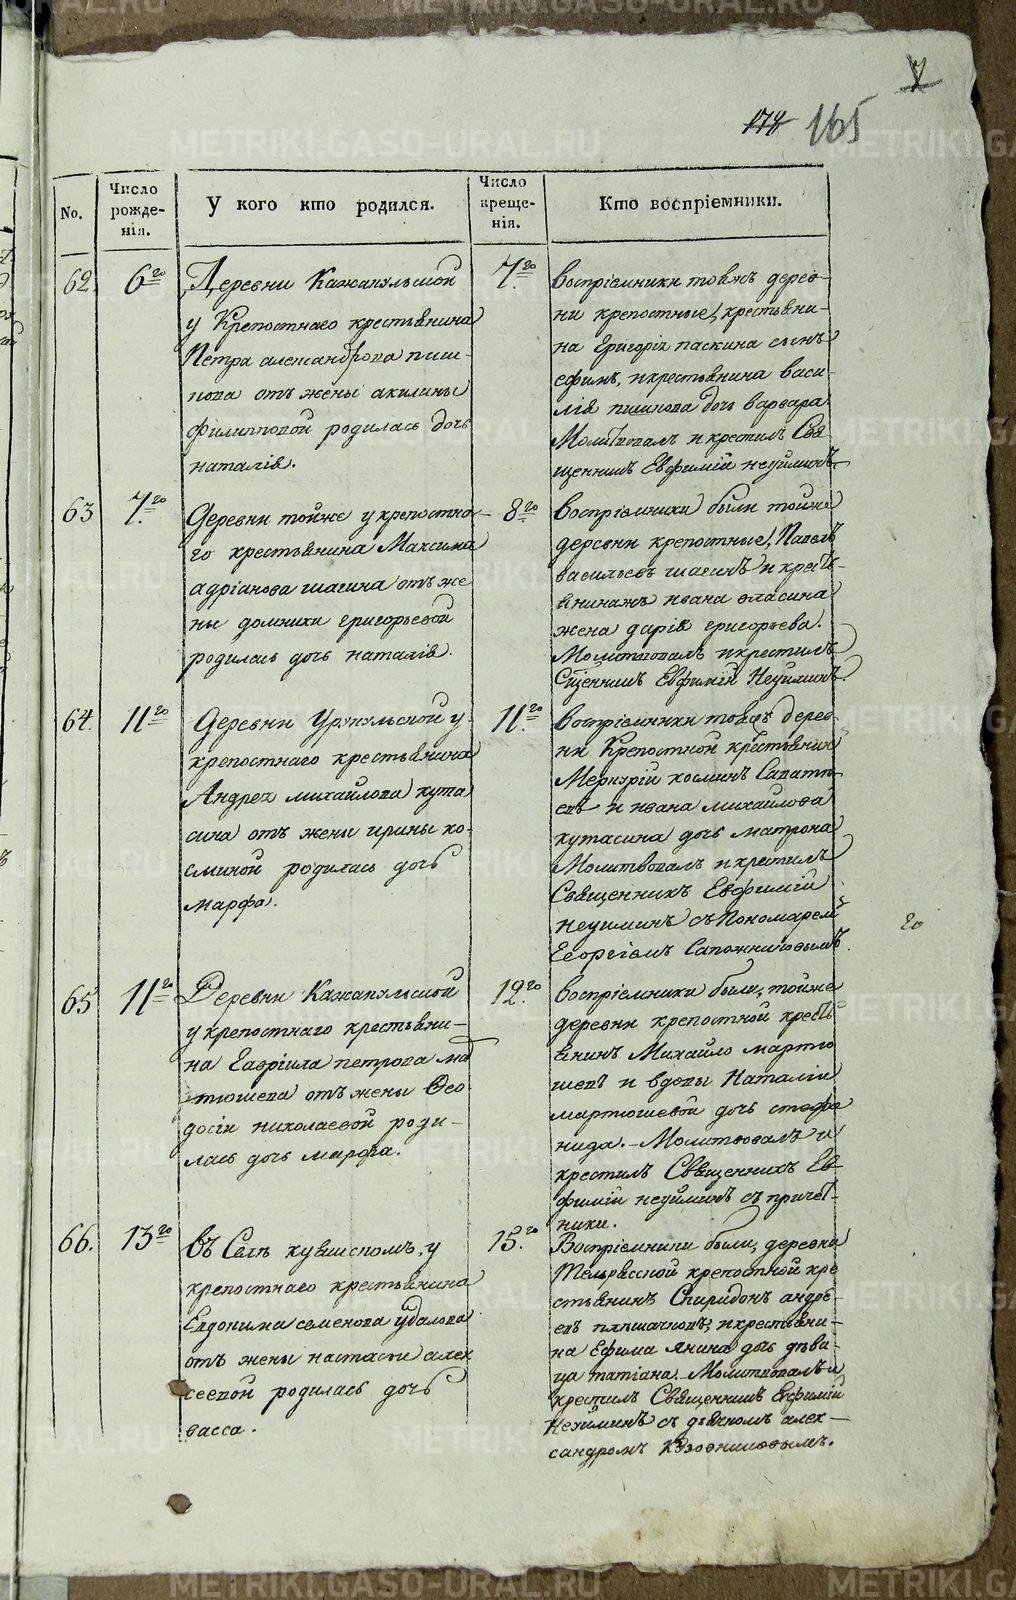 7
174 165
No.
Число рожде-
нія.
У кого кто родился.
Число креще-
нія.
Кто воспріемники.
62. 6го
Деревни Кажакульской
у Крепостнаго крестьянина
Петра александрова пиш-
нова отъ жены акилины
филипповой родилась дочь
наталія.
7го
воспріемники тояжъ дерев-
ни крепостные, крестьяни-
на Григорія паскина сынъ
ефимъ, и крестьянина васи-
лія пишнова дочь варвара.
Молитвовалъ и крестилъ Свя-
щенникъ Евфимій неуйминъ.
63 7го
Деревни тойже у крепостна-
го крестьянина Максима
адріанова шагина отъ же
ны домники григорьевой
родилась дочь наталія.
8го
воспріемники были тойже
деревни крепостные, Павелъ
васильевъ шагинъ и кресть-
янина ивана власина
жена дарія григорьева.
Молитвовалъ и крестилъ
Сщенникъ Евфимій Неуйминъ.
64. 11го
Деревни Урукульской у
крепостнаго крестьянина
Андрея михайлова кута
сина отъ жены ирины ко-
сминой родилась дочь
марфа.
11го
воспріемники тояжъ дерев-
ни Крепостной крестьянинъ
Меркурій косминъ
и ивана михайлова
кутасина дочь матрона
Молитвовалъ и крестилъ
Священникъ Евфимій
Неуйминъ съ Пономаремъ
Георгіемъ Сапожниковымъ.
65 11го
Деревни Кажакульской
у крепостнаго крестьяни-
на Гавріила петрова ма
тюшева отъ жены Ѳео
досіи николаевой роди-
лась дочь марфа.
12го
воспріемники были, тойже
деревни крепостной кресть
янинъ Михайло мартю
шевъ и вдовы Наталіи
мартюшевой дочь стефа
нида. - Молитвовалъ и
крестилъ Священникъ Ев-
фимій неуйминъ съ причет-
ники.
66. 13го
въ Селѣ кувшиномъ, у
крепостнаго крестьянина
Евдокима семенова удалова
отъ жены настасьи алек
сеевой родилась дочь
васса.
15го
Воспріемники были, деревни
крепостной кре
стьянинъ Спиридонъ андре-
евъ и крестьяни-
на Ефима янина дочь дѣви-
ца татіана. Молитвовалъ и
крестилъ Священникъ Евфимій
Неуйминъ съ дьячкомъ алек-
сандромъ
20
METRIKI.GASO-URAL.RU